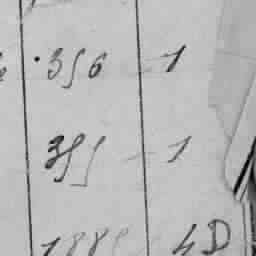 356 - 1
355 - 1
188 4D